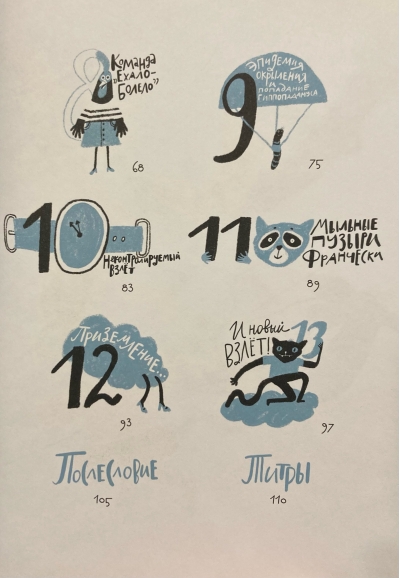 8
Команда
„Ехало-
Болело”
68
9
Эпидемия
окрыления
и
попадание
75
10
Неконтролируемый
взлёт
83
11
Мыльные
пузыри
Франчески
89
12
Приземление...
93
13
И новый
взлёт!
97
Послесловие
105
Титры
110